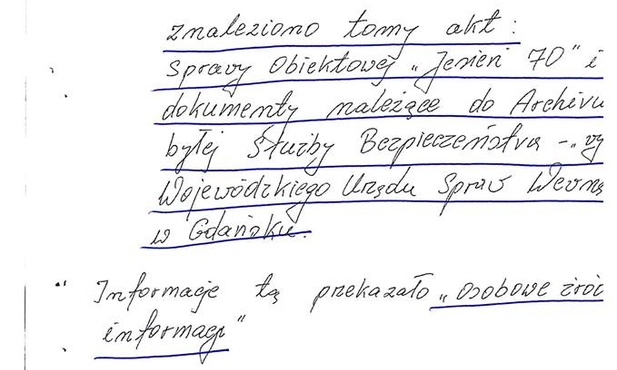 znaleziono tomy akt:
Sprawy Obiektowej „Jesień 70" i
dokumenty należące do Archiwu
byłej Służby Bezpieczeństwa -
Wojewódzkiego Urzędu Spraw Wewnę
w Gdańsku.
Informację tą przekazało „osobowe źród
informacji"